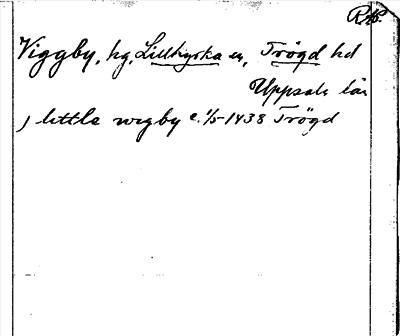 Viggby, hg, Lillkyrka sn, Trögd hd
Uppsala län
) little wigby c. 1/5-1438 Trögd